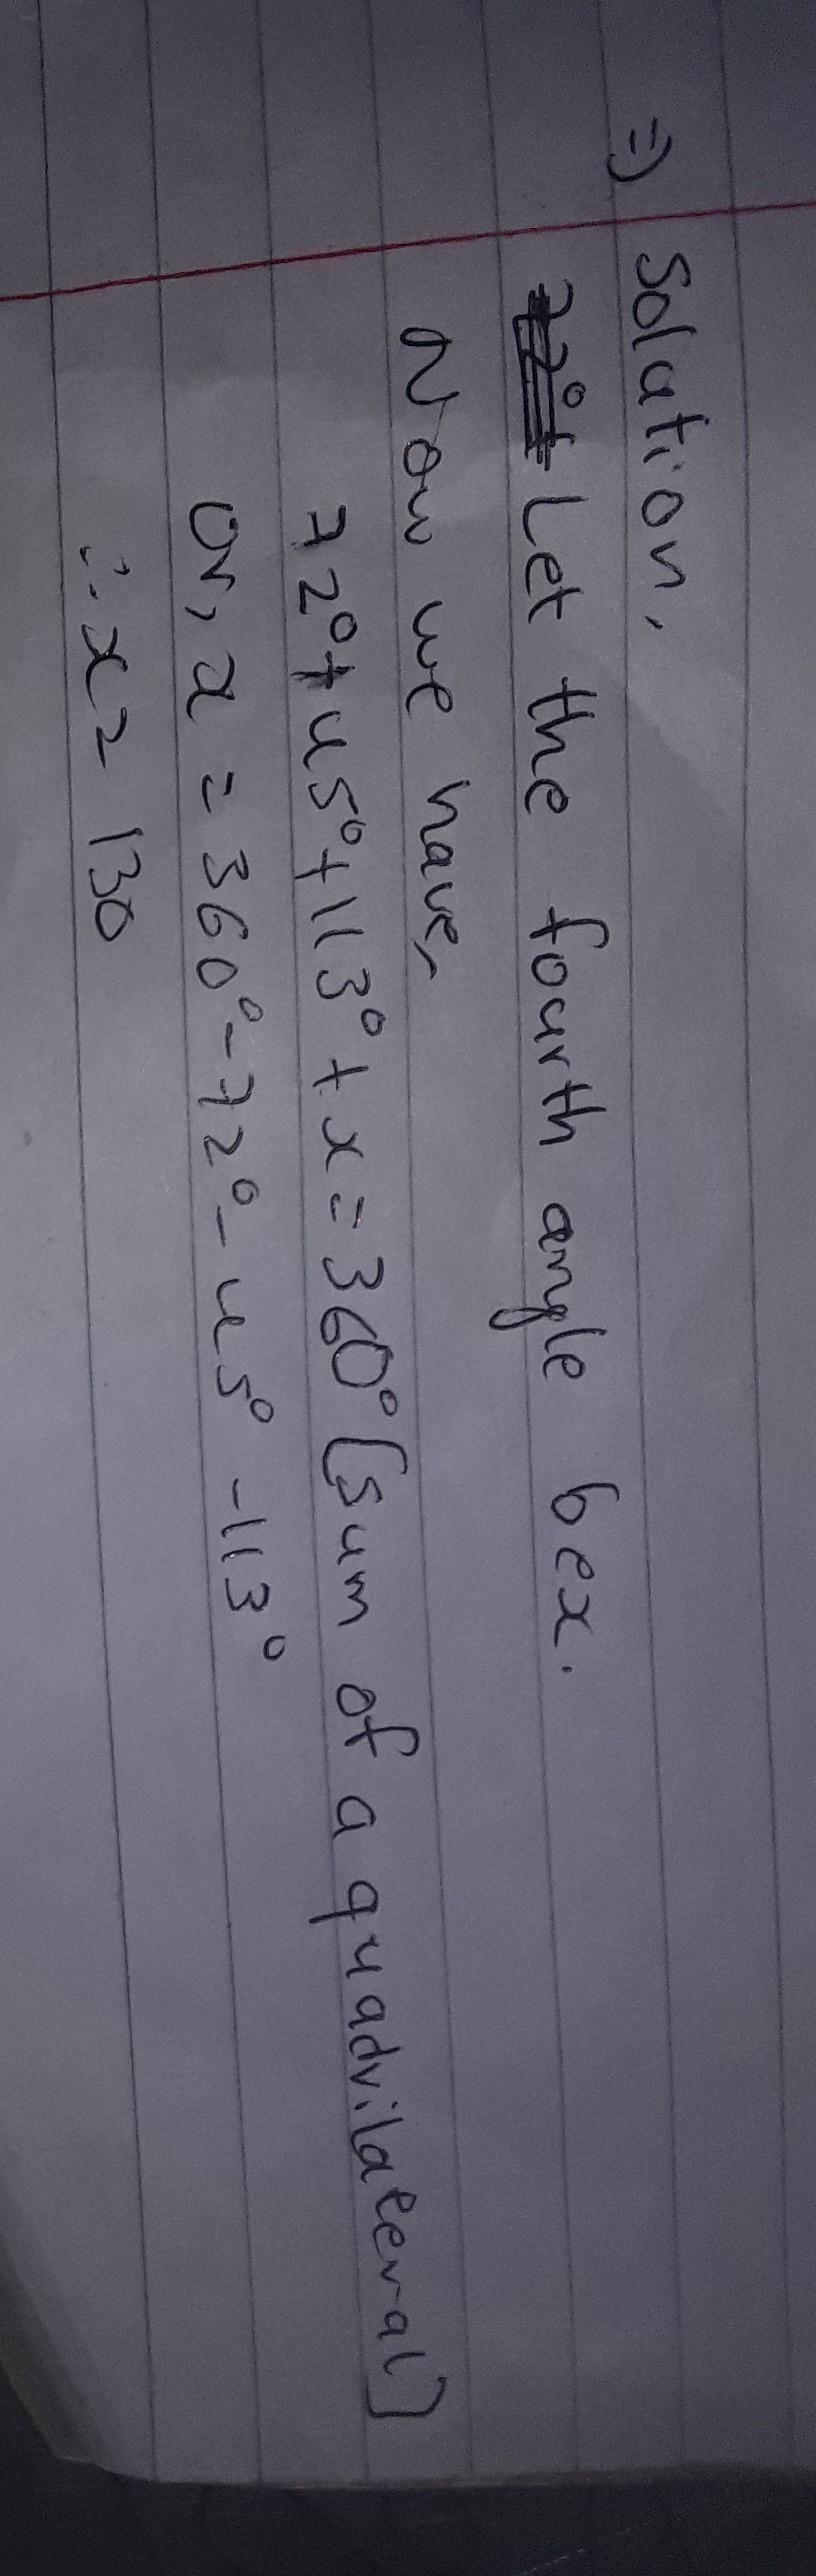 => Solution,
Let the fourth angle be x.
Now we have,
72°+45°+113°+x=360° [sum of a quadrilateral]
or, x = 360°-72°-45°-113°
∴ x = 130